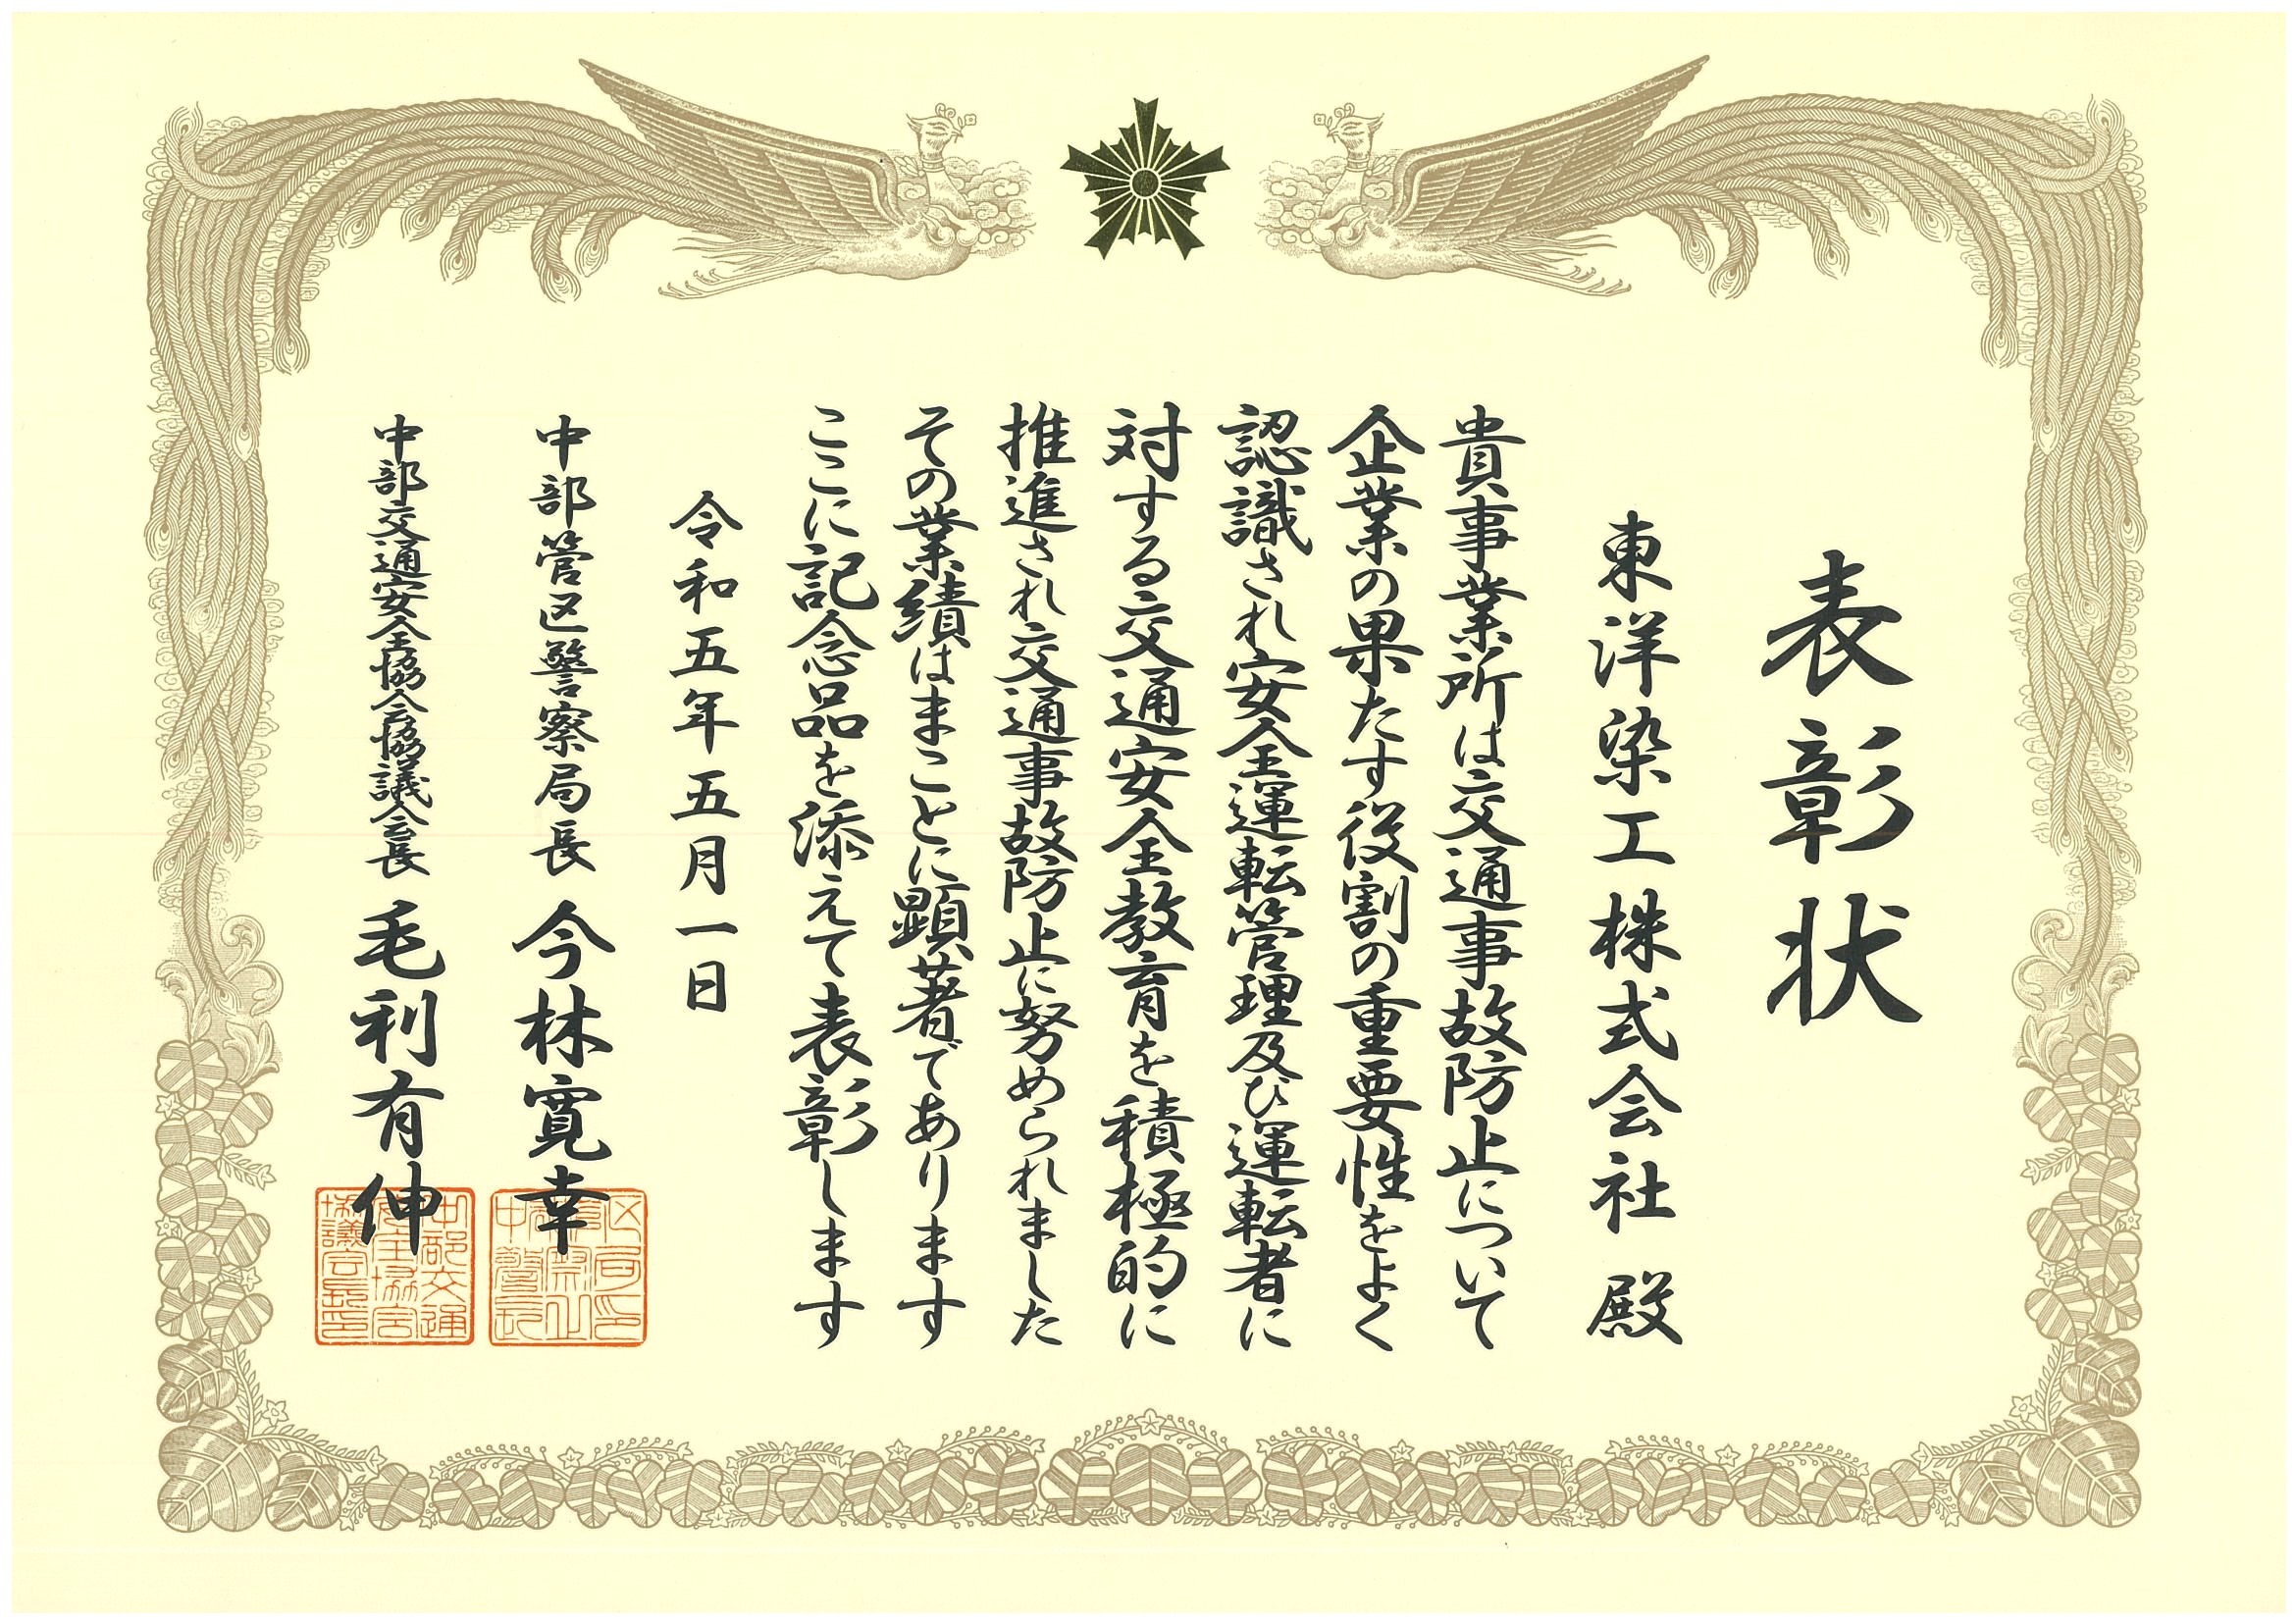 表彰状
東洋染工株式会社 殿
貴事業所は交通事故防止について
企業の果たす役割の重要性をよく
認識され安全運転管理及び運転者に
対する交通安全教育を積極的に
推進され交通事故防止に努められました
その業績はまことに顕著であります
ここに記念品を添えて表彰します
令和五年五月一日
中部管区警察局長 今林寛幸
中部交通安全協会協議会長 毛利有伸